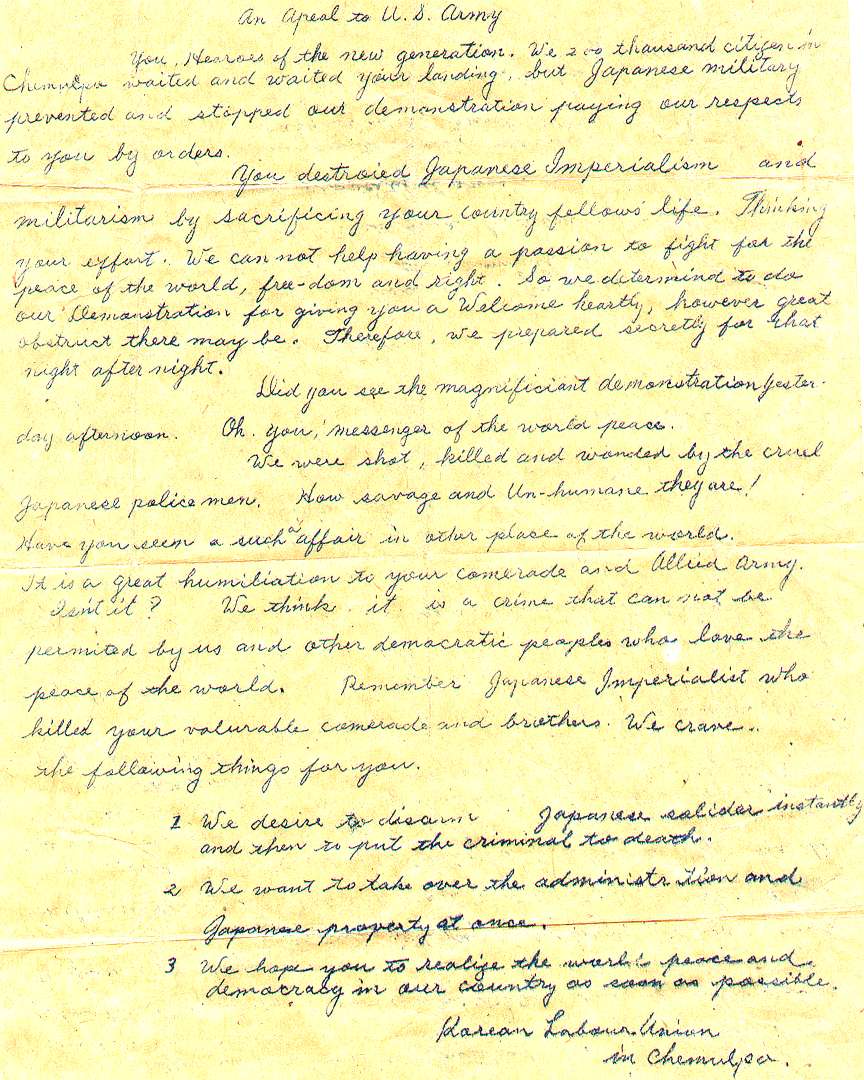 An Apeal to U. S. Army
You, Hearoes of the new generation. We 200 thousand citizen in
Chemulpo waited and waited your landing, but Japanese military
prevented and stopped our demonstration paying our respects
to you by orders.
You destroied Japanese Imperialism and
militarism by sacrificing your country fellows' life. Thinking
your effort. We can not help having a passion to fight for the
peace of the world, free-dom and right. So we determind to do
our Demonstration for giving you a Welcome heartly, however great
obstruct there may be. Therefore, we prepared secretly for that
night after night.
Did you see the magnificiant demonstration yester-
day afternoon. Oh. you, messenger of the world peace.
We were shot, killed and wonded by the cruel
Japanese police men. How savage and Un-humane they are!
Have you seem a such a affair in other place of the world.
It is a great humiliation to your comerade and Allied Army.
Isn't it? We think it is a crime that can not be
permited by us and other democratic peoples who love the
peace of the world. Remember Japanese Imperialist who
killed your valurable comerade and brothers. We crave..
the following things for you.
1 We desire to disarm Japanese solider instantly
and then to put the criminal to death.
2 We want to take over the administration and
Japanese property at once.
3 We hop you to realize the world peace and
democracy in our country as soon as possible.
Korean Labour Union
in Chemulpo.